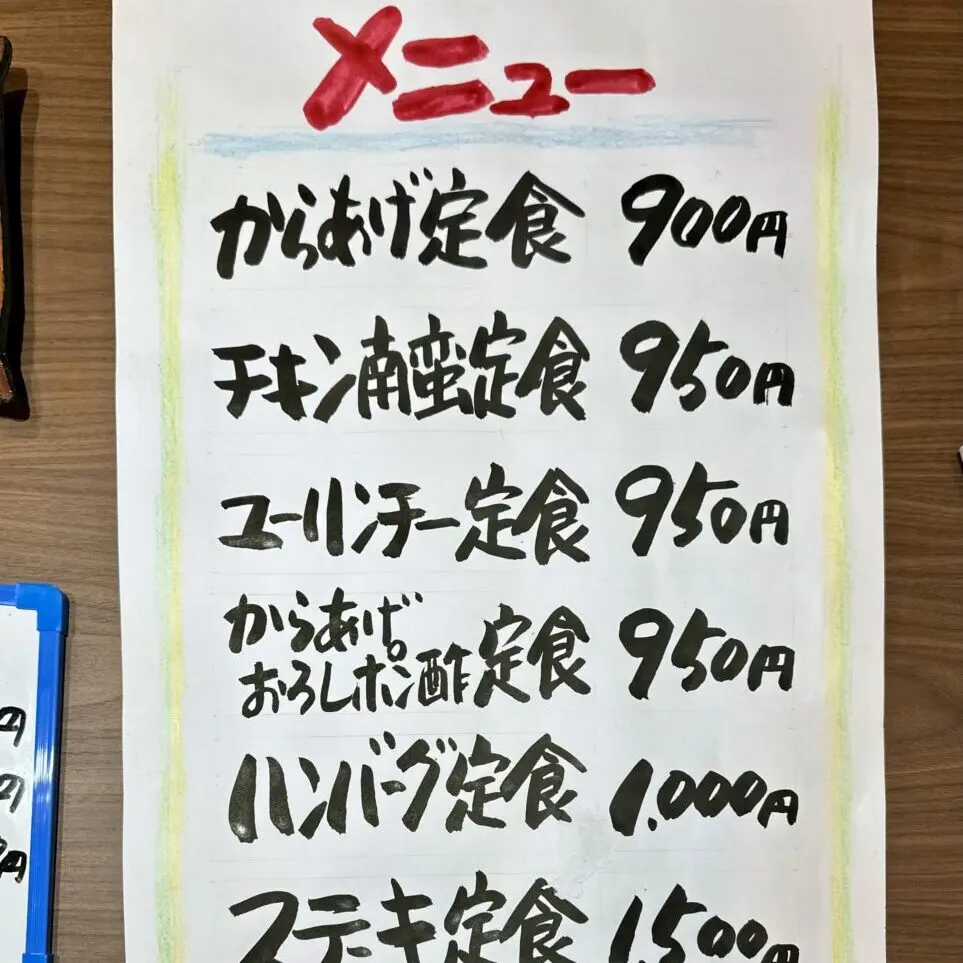 メニュー
からあげ定食 900円
チキン南蛮定食 950円
ユーリンチー定食 950円
からあげ
おろしポン酢定食 950円
ハンバーグ定食 1,000円
ステーキ定食 1,500円
円
円
円